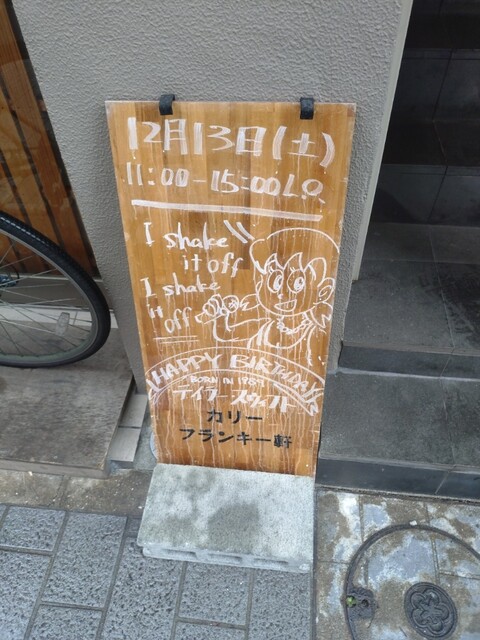 12月13日(土)
11:00-15:00L.O.
I shake
it off
I shake
it off
HAPPY BIRTHDAY
BORN IN 1989
テイラー・スウィフト
カリー
フランキー軒